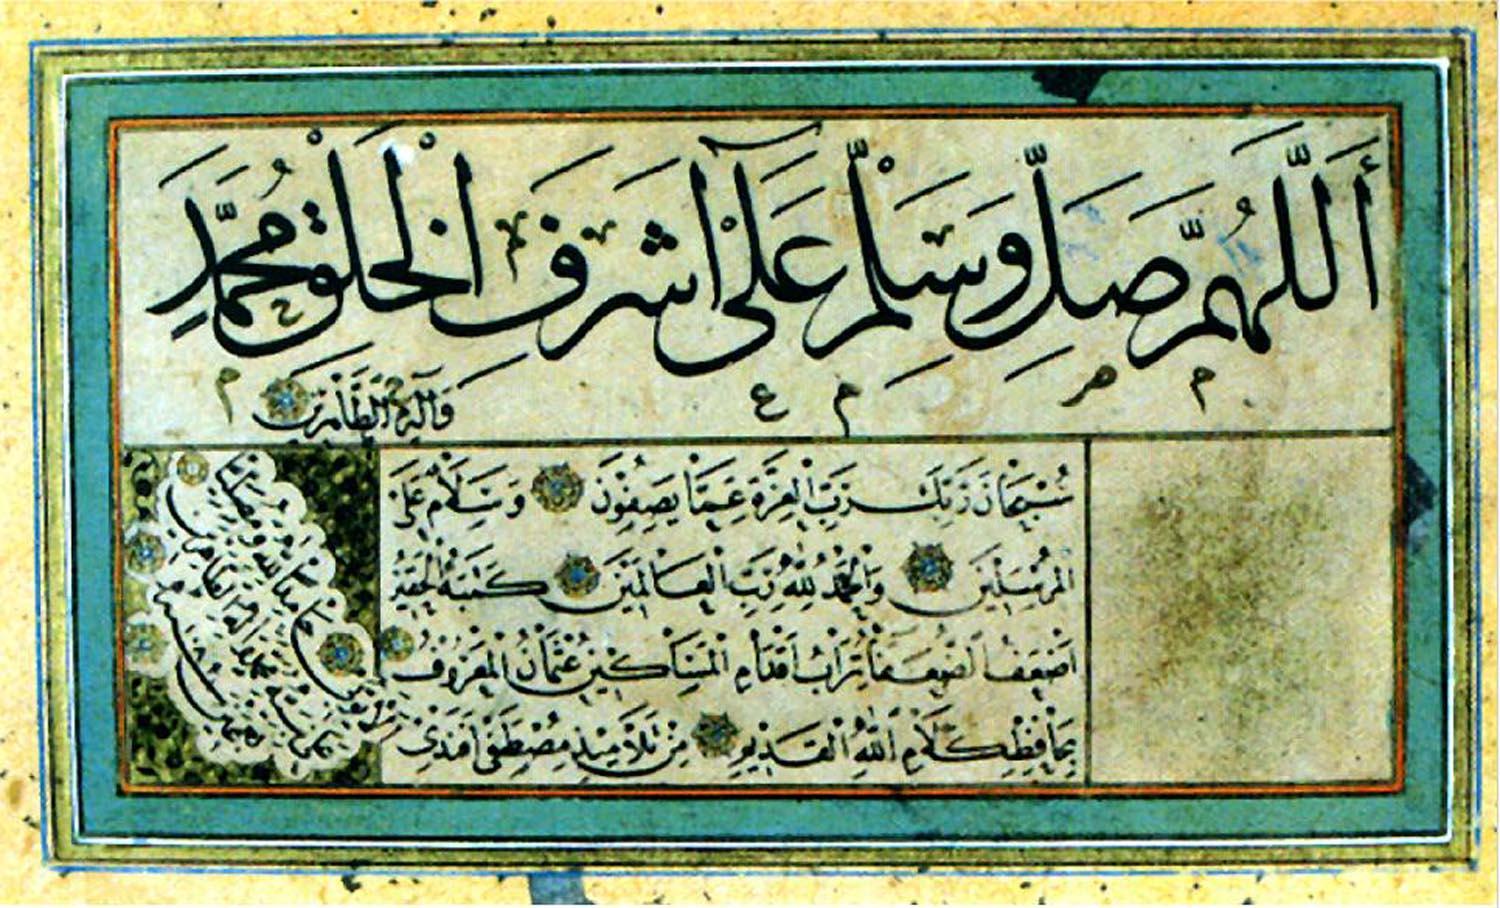 أَللّٰهُمَّ صَلِّ وَسَلِّمْ عَلَىٰ أَشْرَفِ الْخَلْقِ مُحَمَّدٍ
وَآلِهِ الطَّاهِرِينَ
سُبْحَانَ رَبِّكَ رَبِّ الْعِزَّةِ عَمَّا يَصِفُونَ وَسَلَامٌ عَلَى
الْمُرْسَلِينَ وَالْحَمْدُ لِلّٰهِ رَبِّ الْعَالَمِينَ كَتَبَهُ الْحَقِيرُ
اَضْعَفُ الضُّعَفَاءِ تُرَابُ اَقْدَامِ الْمَسَاكِينِ عُثْمَانُ الْمَعْرُوفُ
بِحَافِظِ كَلَامِ اللّٰهِ الْقَدِيرِ مِنْ تَلَامِيذِ مُصْطَفَى اَفَنْدِي